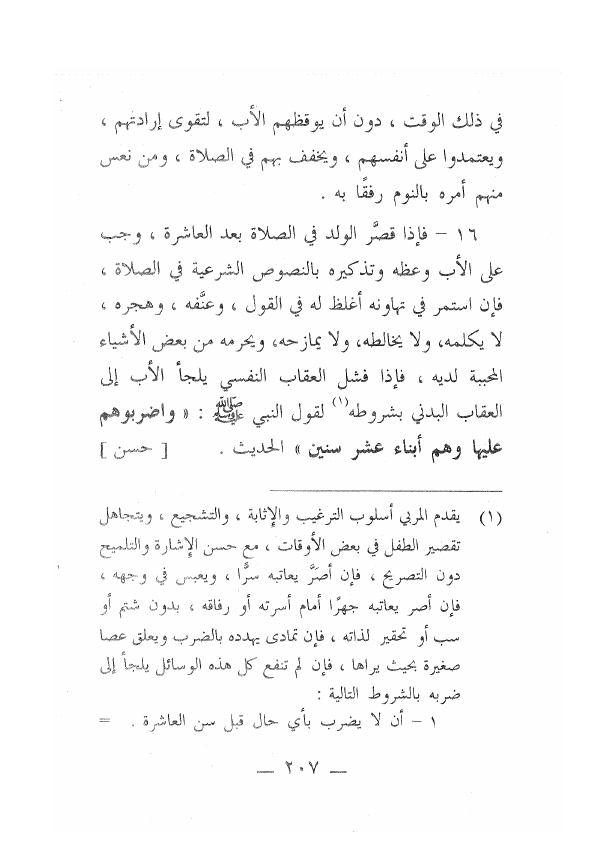 في ذلك الوقت ، دون أن يوقظهم الأب ، لتقوى إرادتهم ،
ويعتمدوا على أنفسهم ، ويخفف بهم في الصلاة ، ومن نعس
منهم أمره بالنوم رفقًا به .
١٦ – فإذا قصَّر الولد في الصلاة بعد العاشرة ، وجب
على الأب وعظه وتذكيره بالنصوص الشرعية في الصلاة ،
فإن استمر في تهاونه أغلظ له في القول ، وعنَّفه ، وهجره ،
لا يكلمه، ولا يخالطه، ولا يمازحه، ويحرمه من بعض الأشياء
المحببة لديه ، فإذا فشل العقاب النفسي يلجأ الأب إلى
العقاب البدني بشروطه(١) لقول النبي ﷺ : « واضربوهم
عليها وهم أبناء عشر سنين » الحديث . [ حسن ]
(١) يقدم المربي أسلوب الترغيب والإثابة ، والتشجيع ، ويتجاهل
تقصير الطفل في بعض الأوقات ، مع حسن الإشارة والتلميح
دون التصريح ، فإن أصَرَّ يعاتبه سرًّا ، ويعبس في وجهه ،
فإن أصر يعاتبه جهرًا أمام أسرته أو رفاقه ، بدون شتم أو
سب أو تحقير لذاته ، فإن تمادى يهدده بالضرب ويعلق عصا
صغيرة بحيث يراها ، فإن لم تنفع كل هذه الوسائل يلجأ إلى
ضربه بالشروط التالية :
١ – أن لا يضرب بأي حال قبل سن العاشرة . =
— ٢٠٧ —